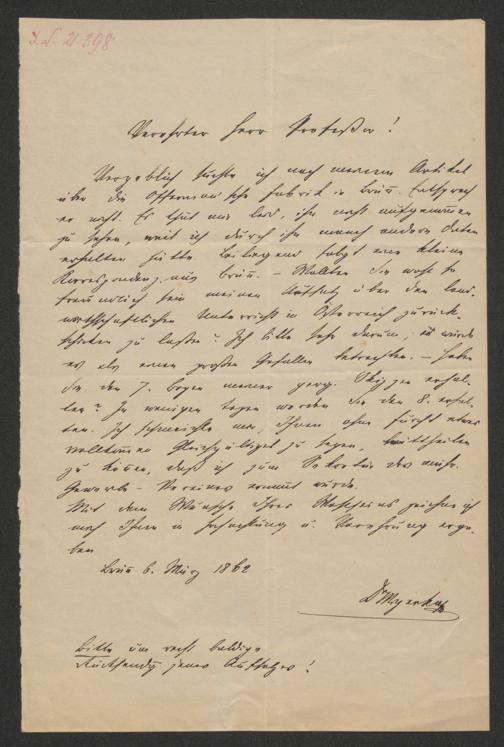 I.N. 21.398
Verehrter Herr Professor!
Vergeblich suchte ich nach meinem Artikel
über die Offermann'sche Fabrik in Brünn. Entsprach
er nicht. Es thut mir leid, ihn nicht aufgenommen
zu sehen, weil ich durch ihn manch andere Daten
erhalten hätte. Beiliegend folgt eine kleine
Korrespondenz aus Brünn. – Wollten Sie wohl so
freundlich sein meinen Aufsatz über den land-
wirthschaftlichen Unterricht in Österreich zurück-
schicken zu lassen? Ich bitte sehr darum, ich würde
es als einen großen Gefallen betrachten. – Haben
Sie den 7. Bogen meiner Skizzen erhal-
ten? In wenigen Tagen werden Sie den 8. erhal-
ten. Ich schmeichle mir, Ihnen ohne Furcht etwas
vollkommen Gleichgültiges zu sagen, mittheilen
zu können, daß ich zum Sekretär des mähr.
Gewerbe-Vereines ernannt wurde.
Mit dem Wunsche Ihres zeichne ich
mich Ihnen in Hochachtung u. Verehrung erge-
ben
Brünn 6. März 1862
Bitte um recht baldige
Rücksendung jenes Aufsatzes!